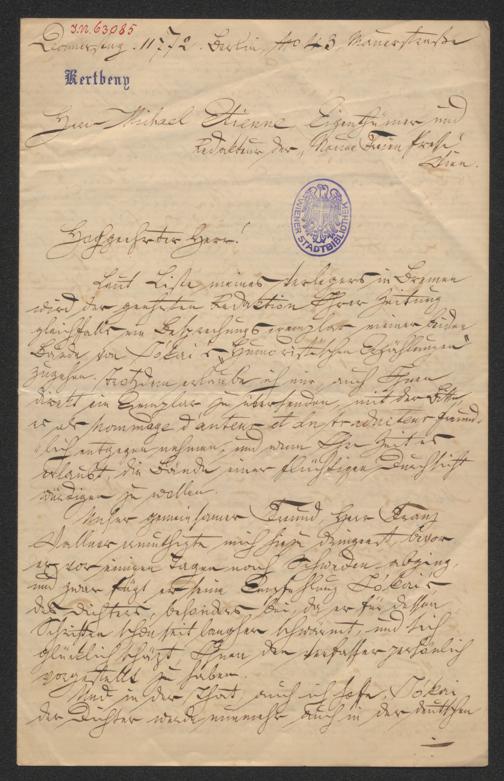 J.N. 63085
Donnerstag. 11/7 72. Berlin No 43 Mauerstrasse
Kertbeny
Herr Michael Etienne, Eigenthümer und
Redakteur der "Neuen Freien Presse"
Wien.
WIENER STADTBIBLIOTHEK
Hochgeehrter Herr!
Laut Liste meines Verlegers in Bremen
wird der geehrten Redaktion Ihrer Zeitung
gleichfalls ein Besprechungsexemplar meiner beiden
Bände von Jókai's "Humoristischen Erzählungen"
zugehen. Trotzdem erlaube ich mir, auch Ihnen
direkt ein Exemplar zu übersenden, mit der Bitte
es als hommage d'auteur et du traducteur freund-
lich entgegen nehmen, und wenn Ihre Zeit es
erlaubt, die Bände einer flüchtigen Durchsicht
würdigen zu wollen.
Unser gemeinsamer Freund Herr Franz
Wallner ermuthigte mich hiezu bevor
er vor einigen Tagen nach Schweden abging,
und zwar fügt er seine Empfehlung Jókai's
des Dichters, besonders bei, da er für dessen
Schriften schon seit langher schwärmt, und sich
glücklich schätzt, Ihnen den Verfasser persönlich
vorgestellt zu haben.
Und in der That, auch ich hoffe, Jókai
der Dichter werde nunmehr auch in der deutschen